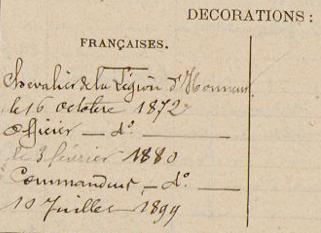 DECORATIONS:
FRANÇAISES.
Chevalier de la Légion d'Honneur
le 16 octobre 1872
officier — do —
le 3 février 1880
Commandeur, — do. —
10 Juillet 1899